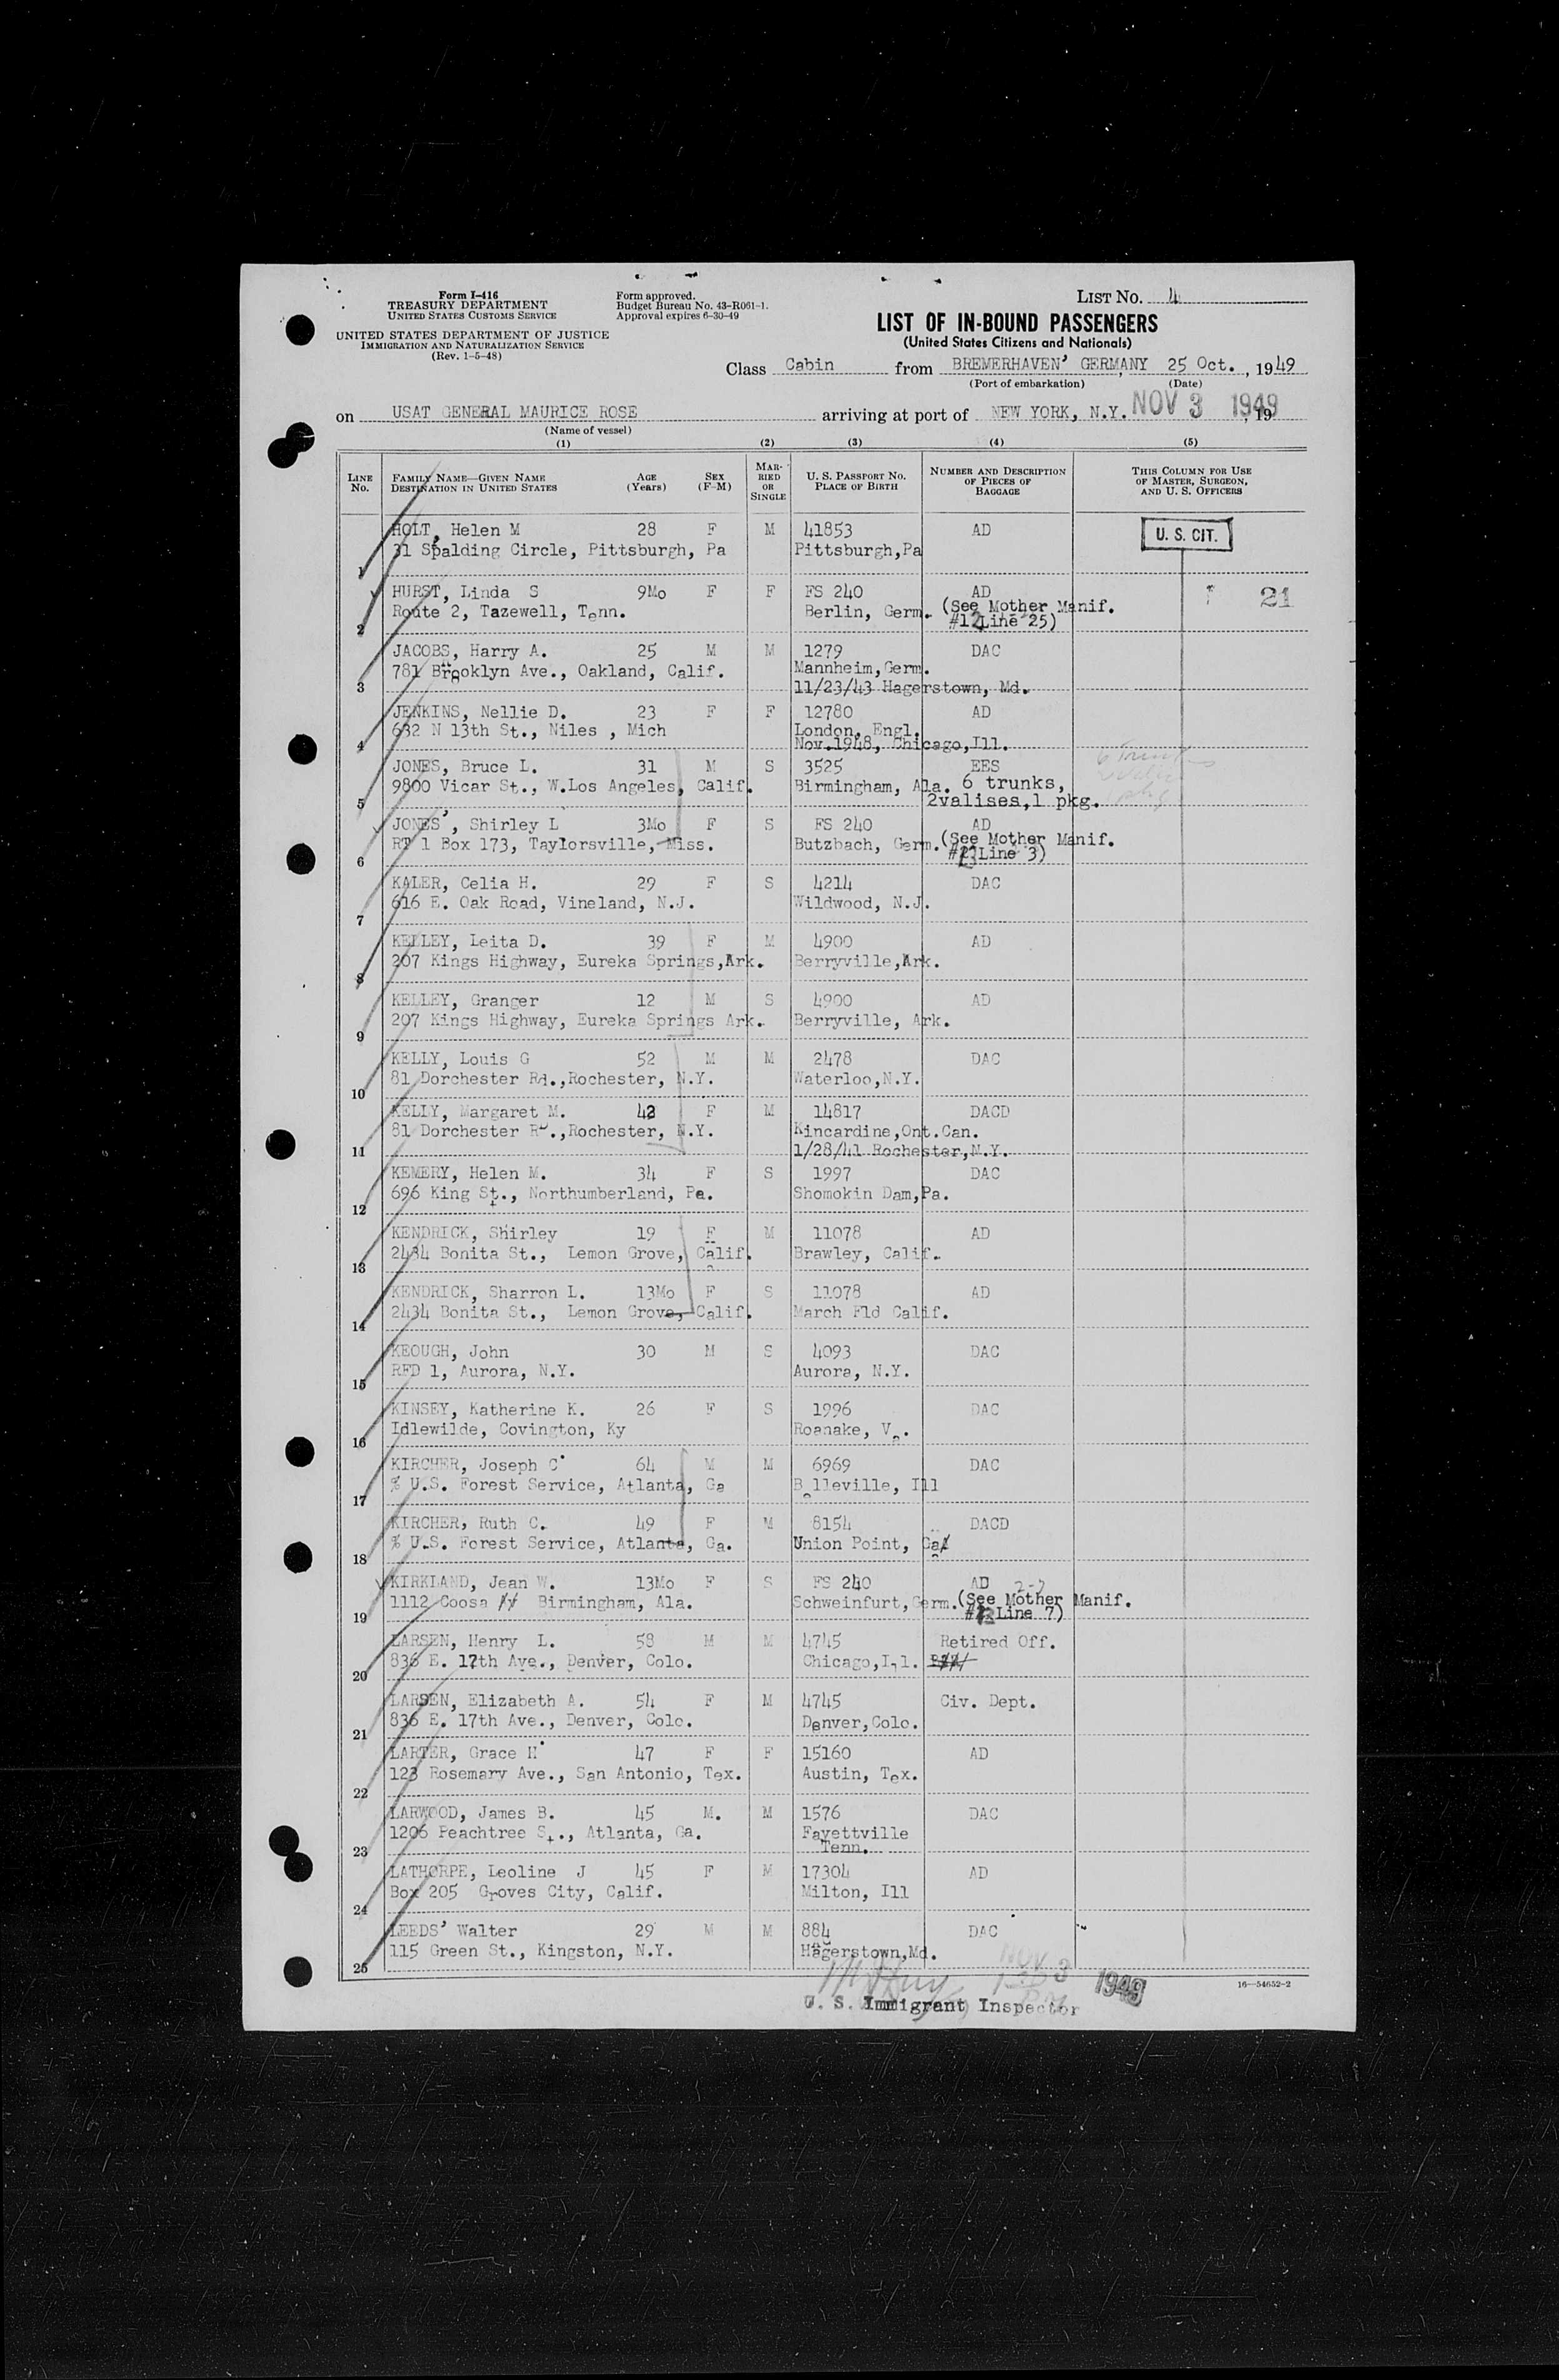 Form I-416
TREASURY DEPARTMENT
UNITED STATES CUSTOMS SERVICE
UNITED STATES DEPARTMENT OF JUSTICE
IMMIGRATION AND NATURALIZATION SERVICE
(Rev. 1-5-48)
Form approved.
Budget Bureau No. 43-R061-1.
Approval expires 6-30-49
LIST No. 4
LIST OF IN-BOUND PASSENGERS
(United States Citizens and Nationals)
Class Cabin from BREMERHAVEN' GERMANY, 25 Oct., 1949
(Port of embarkation) (Date)
on USAT GENERAL MAURICE ROSE arriving at port of NEW YORK, N.Y. NOV 3 1949, 19
(Name of vessel)
(1) (2) (3) (4) (5)
LINE No. FAMILY NAME—GIVEN NAME DESTINATION IN UNITED STATES AGE (Years) SEX (F-M) MARRIED OR SINGLE U. S. PASSPORT No. PLACE OF BIRTH NUMBER AND DESCRIPTION OF PIECES OF BAGGAGE THIS COLUMN FOR USE OF MASTER, SURGEON, AND U. S. OFFICERS
HOLT, Helen M 28 F M 41853 AD U. S. CIT.
31 Spalding Circle, Pittsburgh, Pa Pittsburgh,Pa
1
HURST, Linda S 9Mo F F FS 240 AD 21
Route 2, Tazewell, Tenn. Berlin, Germ. (See Mother Manif.
2 #12Line 25)
JACOBS, Harry A. 25 M M 1279 DAC
781 Brooklyn Ave., Oakland, Calif. Mannheim,Germ.
3 11/23/43 Hagerstown, Md.
JENKINS, Nellie D. 23 F F 12780 AD
632 N 13th St., Niles , Mich London, Engl.
4 Nov.1948, Chicago,Ill.
JONES, Bruce L. 31 M S 3525 EES
9800 Vicar St., W.Los Angeles, Calif. Birmingham, Ala. 6 trunks,
5 2valises,1 pkg.
JONES', Shirley L 3Mo F S FS 240 AD
RT 1 Box 173, Taylorsville, Miss. Butzbach, Germ. (See Mother Manif.
6 Line 3)
KALER, Celia H. 29 F S 4214 DAC
616 E. Oak Road, Vineland, N.J. Wildwood, N.J.
7
KELLEY, Leita D. 39 F M 4900 AD
207 Kings Highway, Eureka Springs,Ark. Berryville,Ark.
8
KELLEY, Granger 12 M S 4900 AD
207 Kings Highway, Eureka Springs Ark. Berryville, Ark.
9
KELLY, Louis G 52 M M 2478 DAC
81 Dorchester Rd.,Rochester, N.Y. Waterloo,N.Y.
10
KELLY, Margaret M. 42 F M 14817 DACD
81 Dorchester Rd.,Rochester, N.Y. Kincardine,Ont.Can.
11 1/28/41 Rochester,N.Y.
KEMERY, Helen M. 34 F S 1997 DAC
696 King St., Northumberland, Pa. Shomokin Dam,Pa.
12
KENDRICK, Shirley 19 F M 11078 AD
2434 Bonita St., Lemon Grove, Calif. Brawley, Calif.
13
KENDRICK, Sharron L. 13Mo F S 11078 AD
2434 Bonita St., Lemon Grove, Calif. March Fld Calif.
14
KEOUGH, John 30 M S 4093 DAC
RFD 1, Aurora, N.Y. Aurora, N.Y.
15
KINSEY, Katherine K. 26 F S 1996 DAC
Idlewilde, Covington, Ky Roanake, Va.
16
KIRCHER, Joseph C 64 M M 6969 DAC
% U.S. Forest Service, Atlanta, Ga Belleville, Ill
17
KIRCHER, Ruth C. 49 F M 8154 DACD
% U.S. Forest Service, Atlanta, Ga. Union Point, Ga
18
KIRKLAND, Jean W. 13Mo F S FS 240 AD
1112 Coosa Birmingham, Ala. Schweinfurt,Germ. (See Mother Manif.
19 Line 7)
LARSEN, Henry L. 58 M M 4745 Retired Off.
836 E. 17th Ave., Denver, Colo. Chicago,Ill.
20
LARSEN, Elizabeth A. 54 F M 4745 Civ. Dept.
836 E. 17th Ave., Denver, Colo. Denver,Colo.
21
LARTER, Grace H 47 F F 15160 AD
123 Rosemary Ave., San Antonio, Tex. Austin, Tex.
22
LARWOOD, James B. 45 M. M 1576 DAC
1206 Peachtree St., Atlanta, Ga. Fayettville
23 Tenn.
LATHORPE, Leoline J 45 F M 17304 AD
Box 205 Groves City, Calif. Milton, Ill
24
LEEDS' Walter 29 M M 884 DAC
115 Green St., Kingston, N.Y. Hagerstown,Md.
25
NOV 3 1949
16—54652-2
U. S. Immigrant Inspector